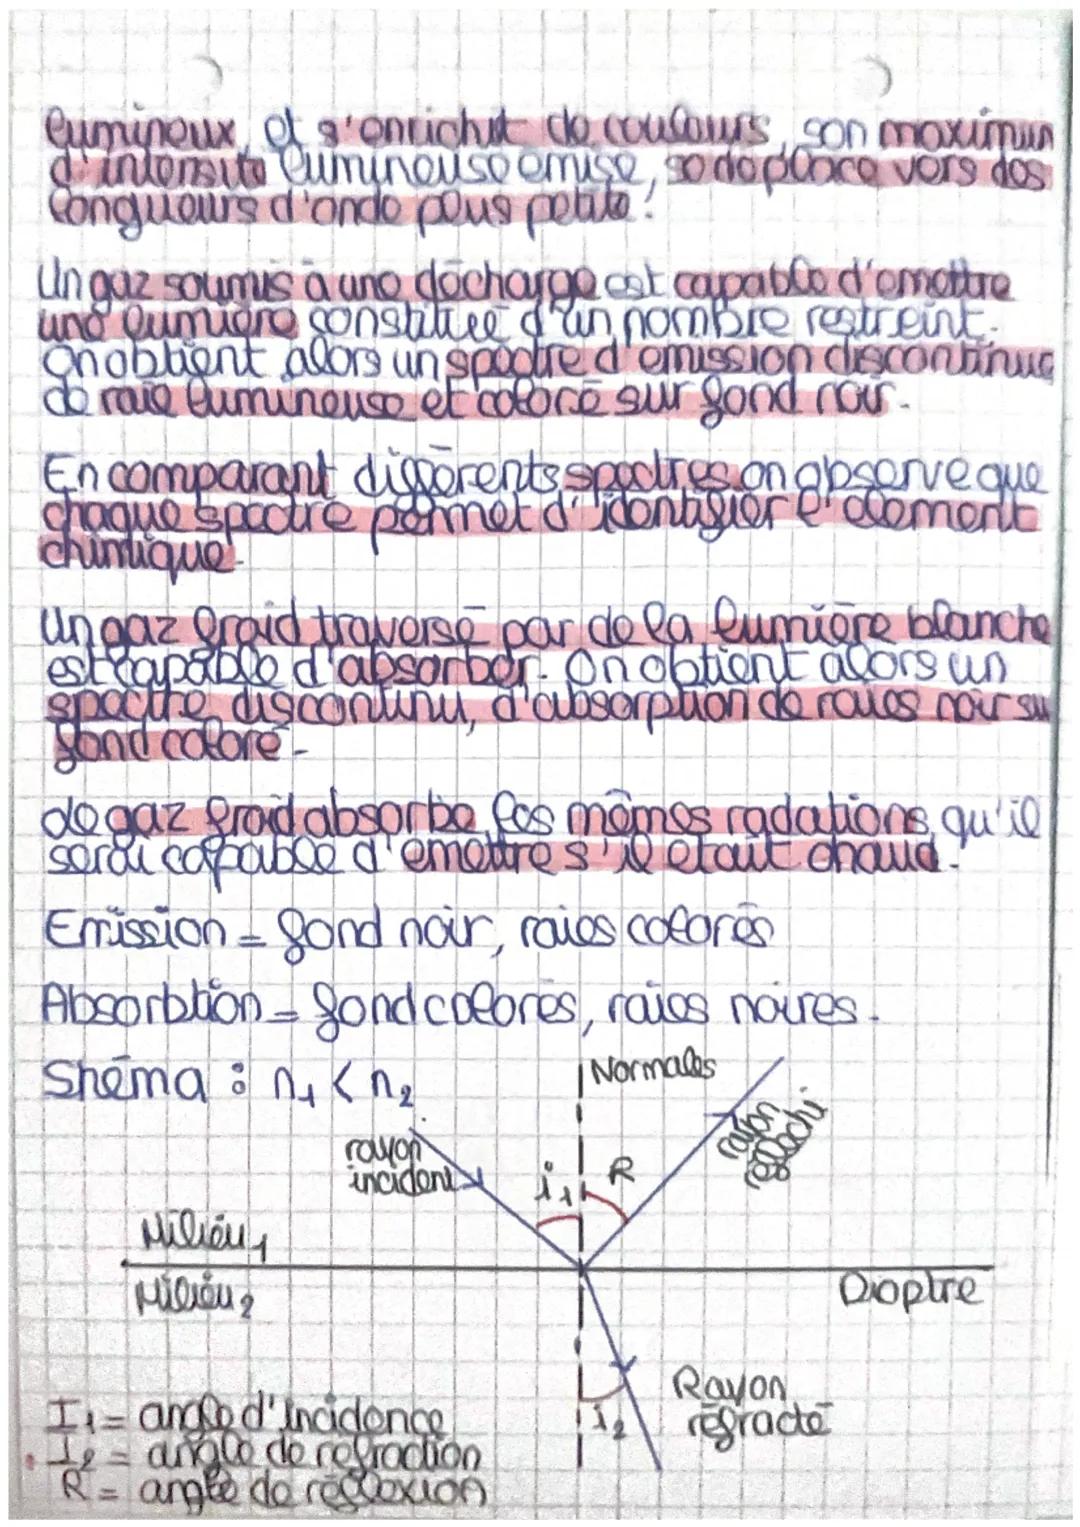 lumineux, et s'enrichit de couleurs, son maximum
d'intensité lumineuse émise, se déplace vers des
longueurs d'onde plus petite.
Un gaz soumis à une décharge est capable d'emettre
une lumière constituée d'un nombre restreint.
On obtient alors un spectre d'emission discontinue
de raie lumineuse et coloré sur fond noir.
En comparant différents spectres on observe que
chaque spectre permet d'identifier l'element
chimique.
Un gaz froid traversé par de la lumière blanche
est capable d'absorber. On obtient alors un
spectre discontinu, d'absorption de raies noir sur
fond coloré.
Le gaz froid absorbe les mêmes radations qu'il
serai cappable d'emettre s'il etait chaud.
Emission = fond noir, raies colorés
Absorbtion = fond colorés, raies noires.
Shéma : n1 < n2
Normales
rayon
incident
i1
R
rayon
réflechi
Milieu 1
Milieu 2
Dioptre
Rayon
réfracté
i2
I1 = angle d'incidence
I2 = angle de refraction
R = angle de réflexion